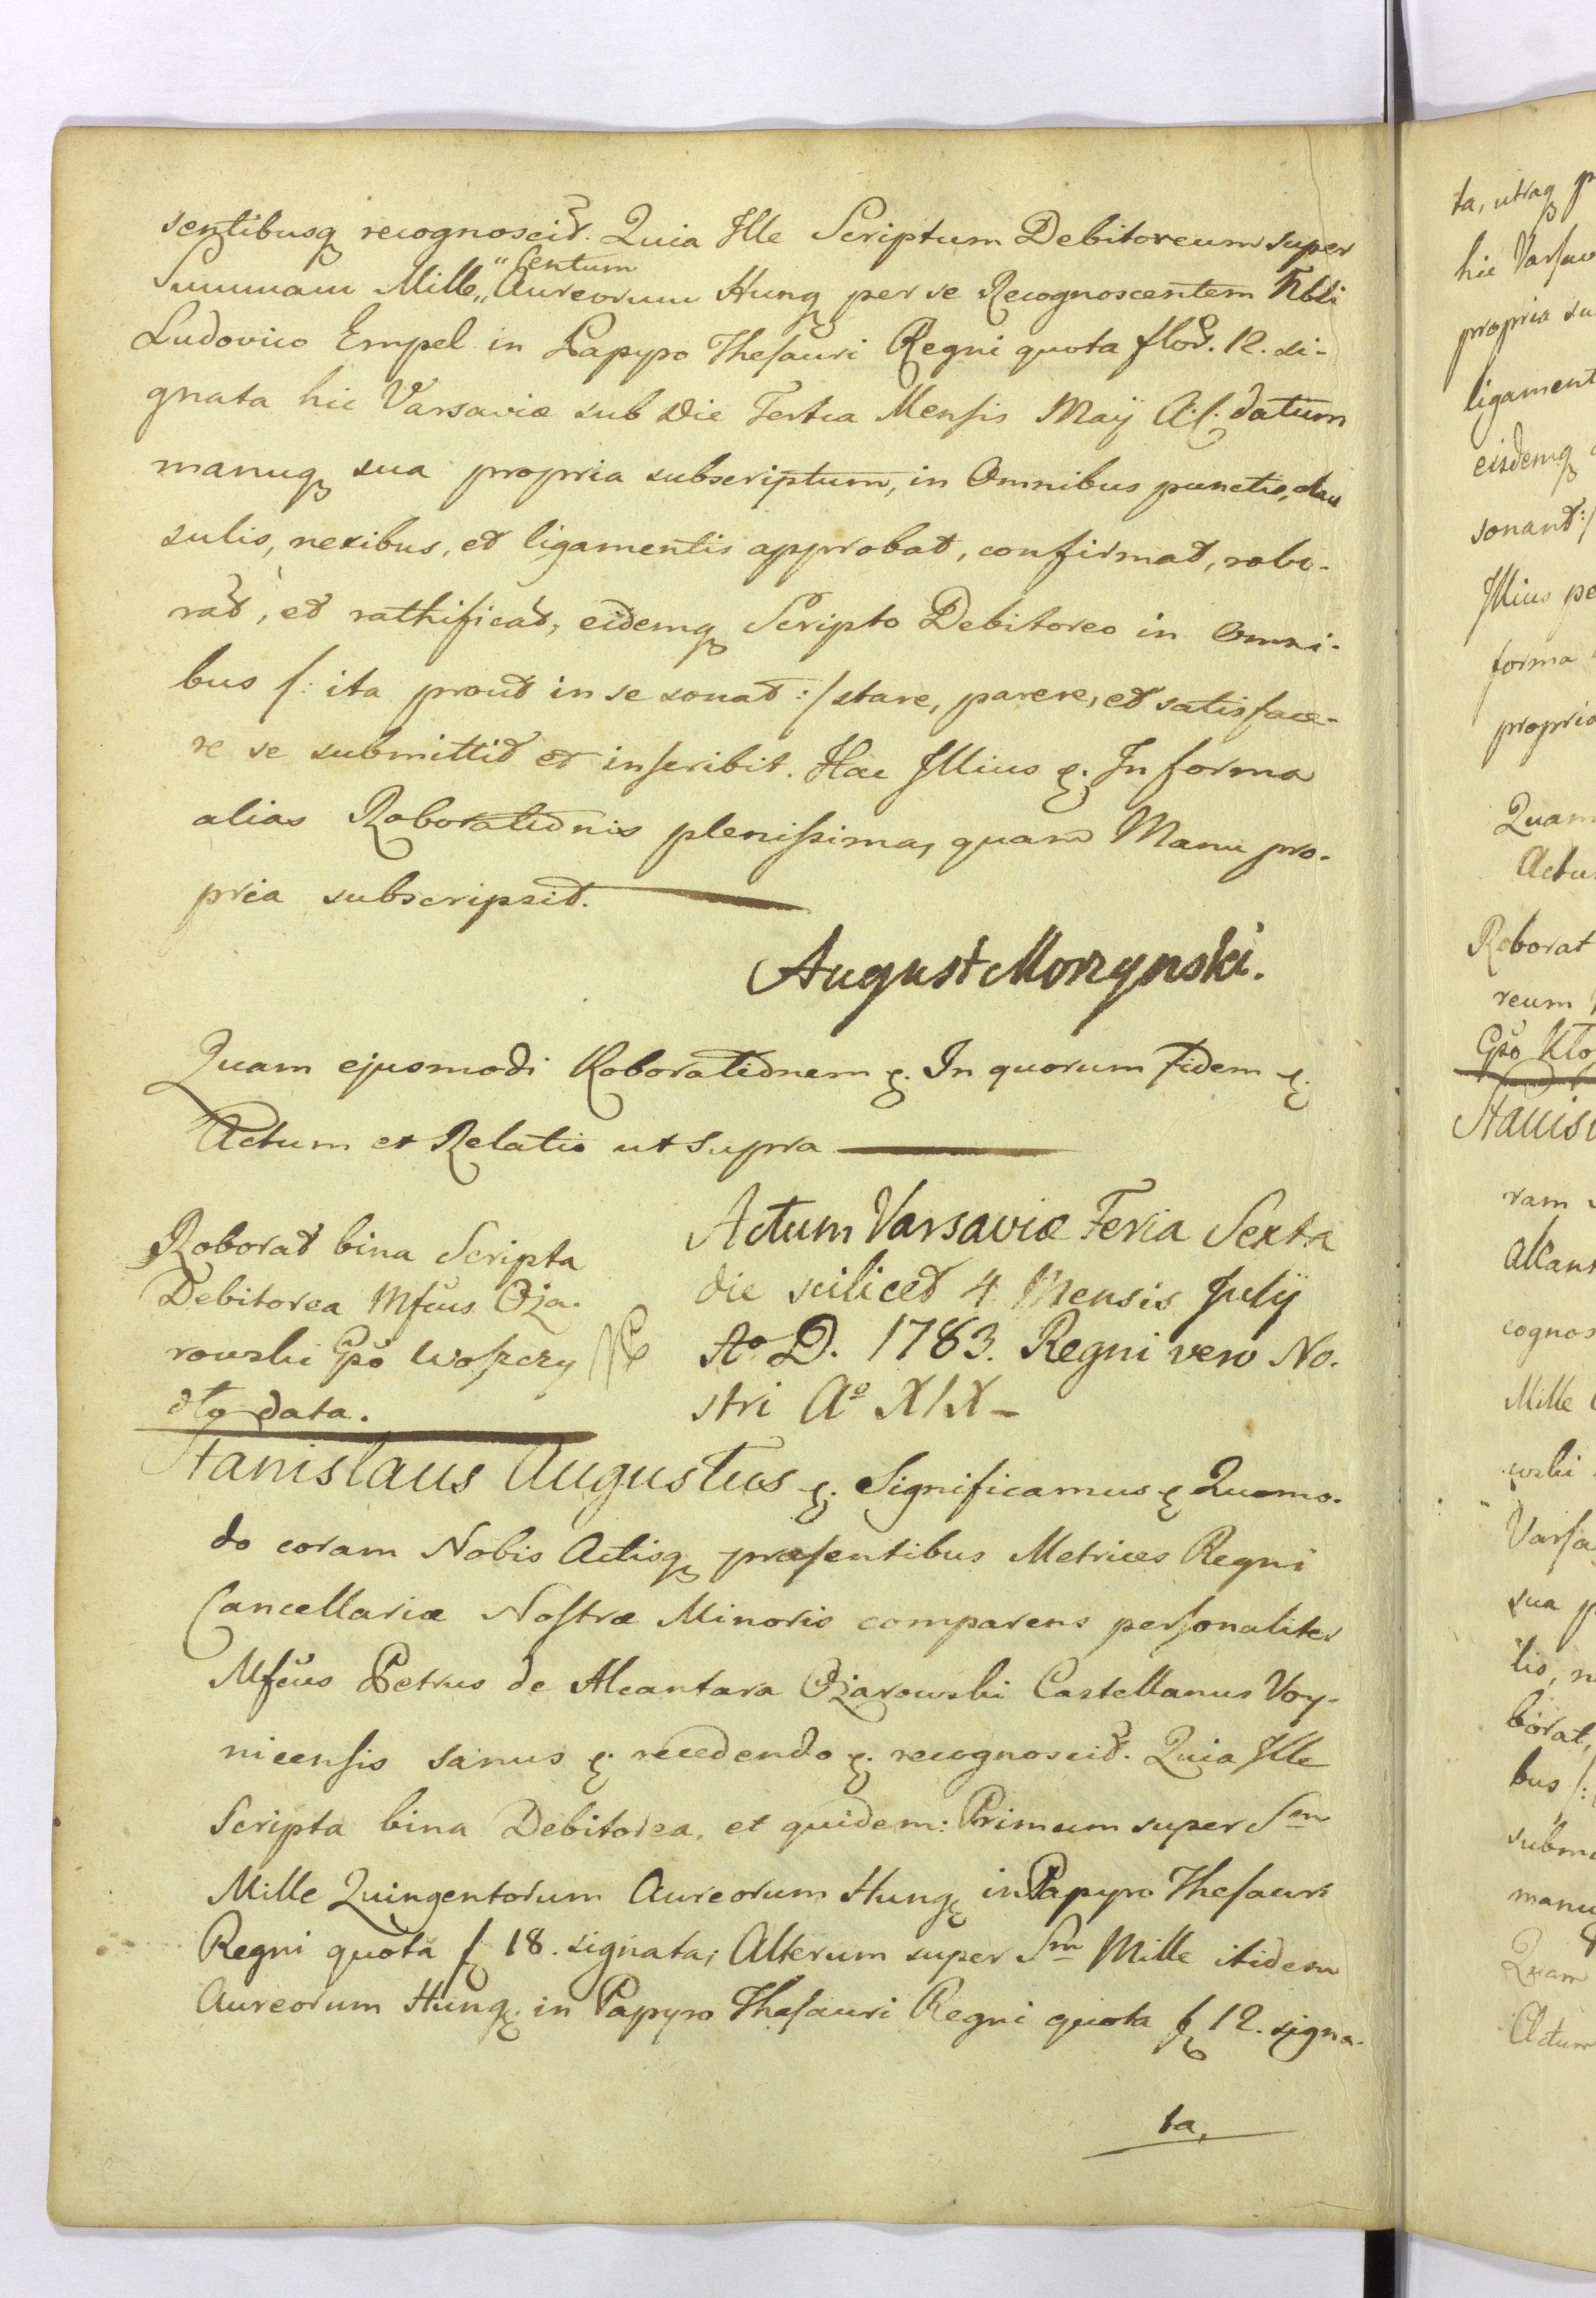 sentibusq recognoscit. Quia Ille Scriptum Debitoreum super
Summam Mille „ Centum Aureorum Hung per se Recognoscentem Nbli
Ludovico Empel in Papyro Thesauri Regni quota flor. 12. si-
gnata hic Varsaviæ sub Die Tertia Mensis Maÿ A. C. datum
manuq sua propria subscriptum, in Omnibus punctis, clau
sulis, nexibus, et ligamentis approbat, confirmat, robo-
rat, et rathificat, eidemq Scripto Debitoreo in Omni-
bus /: ita prout in se sonat :/ stare, parere, et satisface-
re se submittit et inscribit. Hac Illius ę. In forma
alias Roborationis plenissima, quam Manu pro-
pria subscripsit.
August Morzynski.
Quam ejusmodi Roborationem ę. In quorum Fidem ę.
Actum et Relatio ut supra
Roborat bina Scripta
Debitorea Mfcus Oża-
rowski Gso Woszczy
dto data.
Actum Varsaviæ Feria Sexta
die scilicet 4 Mensis Julÿ
Ao D. 1783. Regni vero No-
stri Ao XIX-
Stanislaus Augustus ę. Significamus ę Quomo-
do coram Nobis Actisq præsentibus Metrices Regni
Cancellariæ Nostræ Minoris comparens personaliter
Mfcus Petrus de Alcantara Ożarowski Castellanus Voy-
nicensis sanus ę. recedendo ę. recognoscit. Quia Ille
Scripta bina Debitorea, et quidem: Primum super Sm
Mille Quingentorum Aureorum Hung in Papyro Thesauri
Regni quota f 18. signata; Alterum super Sm Mille itidem
Aureorum Hung. in Papyro Thesauri Regni quota f 12. signa-
ta,
ta, utraq
hic Varsav
propria su
ligament
eisdemq
sonant :/
Illius pe
forma
propria
Quam
Actu
Roborat
reum
Gso
Stanis
ram
Alcant
cognos
Mille
wski
Varsa
sua p
lis, n
borat,
bus /:
subm
manu
Quam
Actum